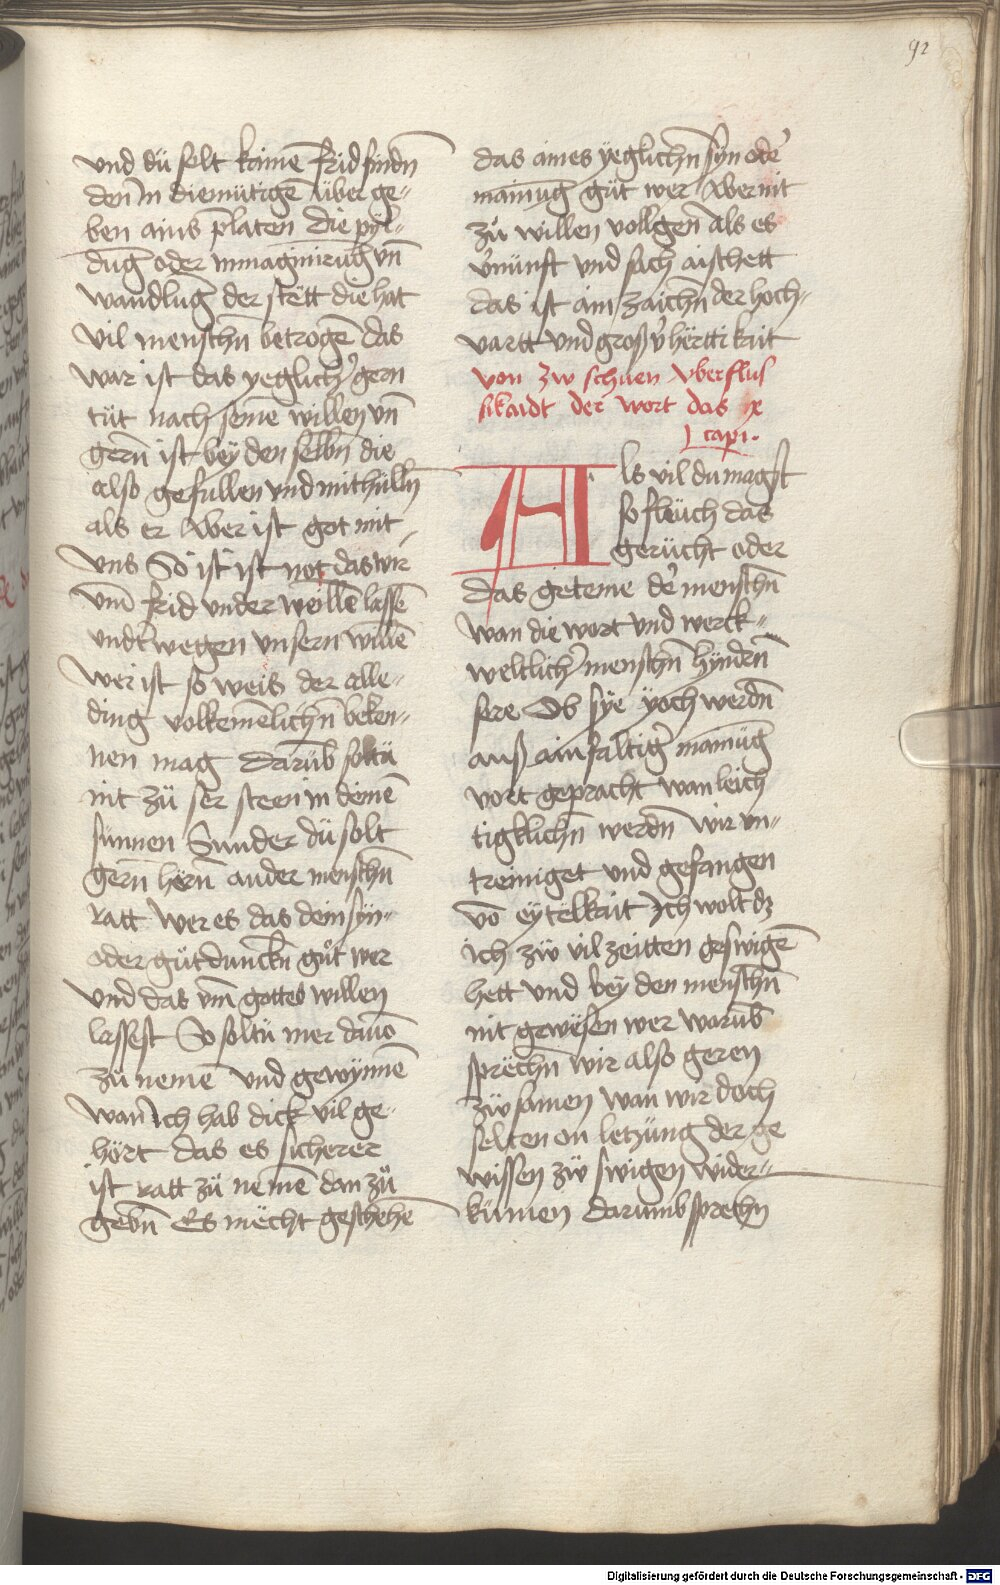 92
und dü solt kainē frid findn̄
den̄ in diemütigē über ge-
ben ains platen die pyl-
dūg oder inmaginirūg vn̄
wandlūg der stett die hat
vil menschn̄ betrogē das
war ist das yeglichr̕ gern
tüt nach seinē willen vn̄
gern̄ ist bey den selbn̄ die
also gefullen und mithülln̄
als er Aber ist got mit
vns So ist ist not das wir
vm̄ frid under weillē lassē
undt̕wegen unsern willē
Wer ist so weis der alle-
ding volkemēlichn̄ beken-
nen mag darūb soltü
nit zü ser steen in deinē
sünnen Sunder dü solt
gern̄ hörn̄ ander menschn̄
ratt wer es das dein syn-
oder gütdunckn̄ güt wer
und das vm̄ gottes willen
lassest So soltü mer dauō
zü nemē und gewynnē
wan ich hab dick vil ge-
hört das es sicherer
ist ratt zü nemē dan zü
gebn̄ Es mecht geschehē
das aines yeglichn̄ syn odr̕
mainūg güt wer Aber nit
zü willen vollgen als es
v̕nünft und sach aischett
das ist ain zaichn̄ der hoch-
vartt und gross v̕hërtikait
von zw schuen vberflus
sikaidt der wort das x
capi.
Als vil du magst
so fleüch das
gerücht oder
das geteme dr̕ menschn̄
wan die wort und werck-
weltlichr̕ menschn̄ hyndrn̄
sere Ob sye yoch werdn̄
auß ainfaltigr̕ mainūg
vort gepracht wan leich
tigklichn̄ werdn̄ wir vn-
treiniget und gefangen
vō eytelkait Ich wolt dz
ich zw vil zeitten geswigē
hett und bey den menschn̄
nit gewësen wer warūb
sprëchn̄ wir also geren
zw samen wan wir doch
selten on letzüng der ge
wissen zw swigen wider-
kümen darumb sprechn̄
Digitalisierung gefördert durch die Deutsche Forschungsgemeinschaft - DFG